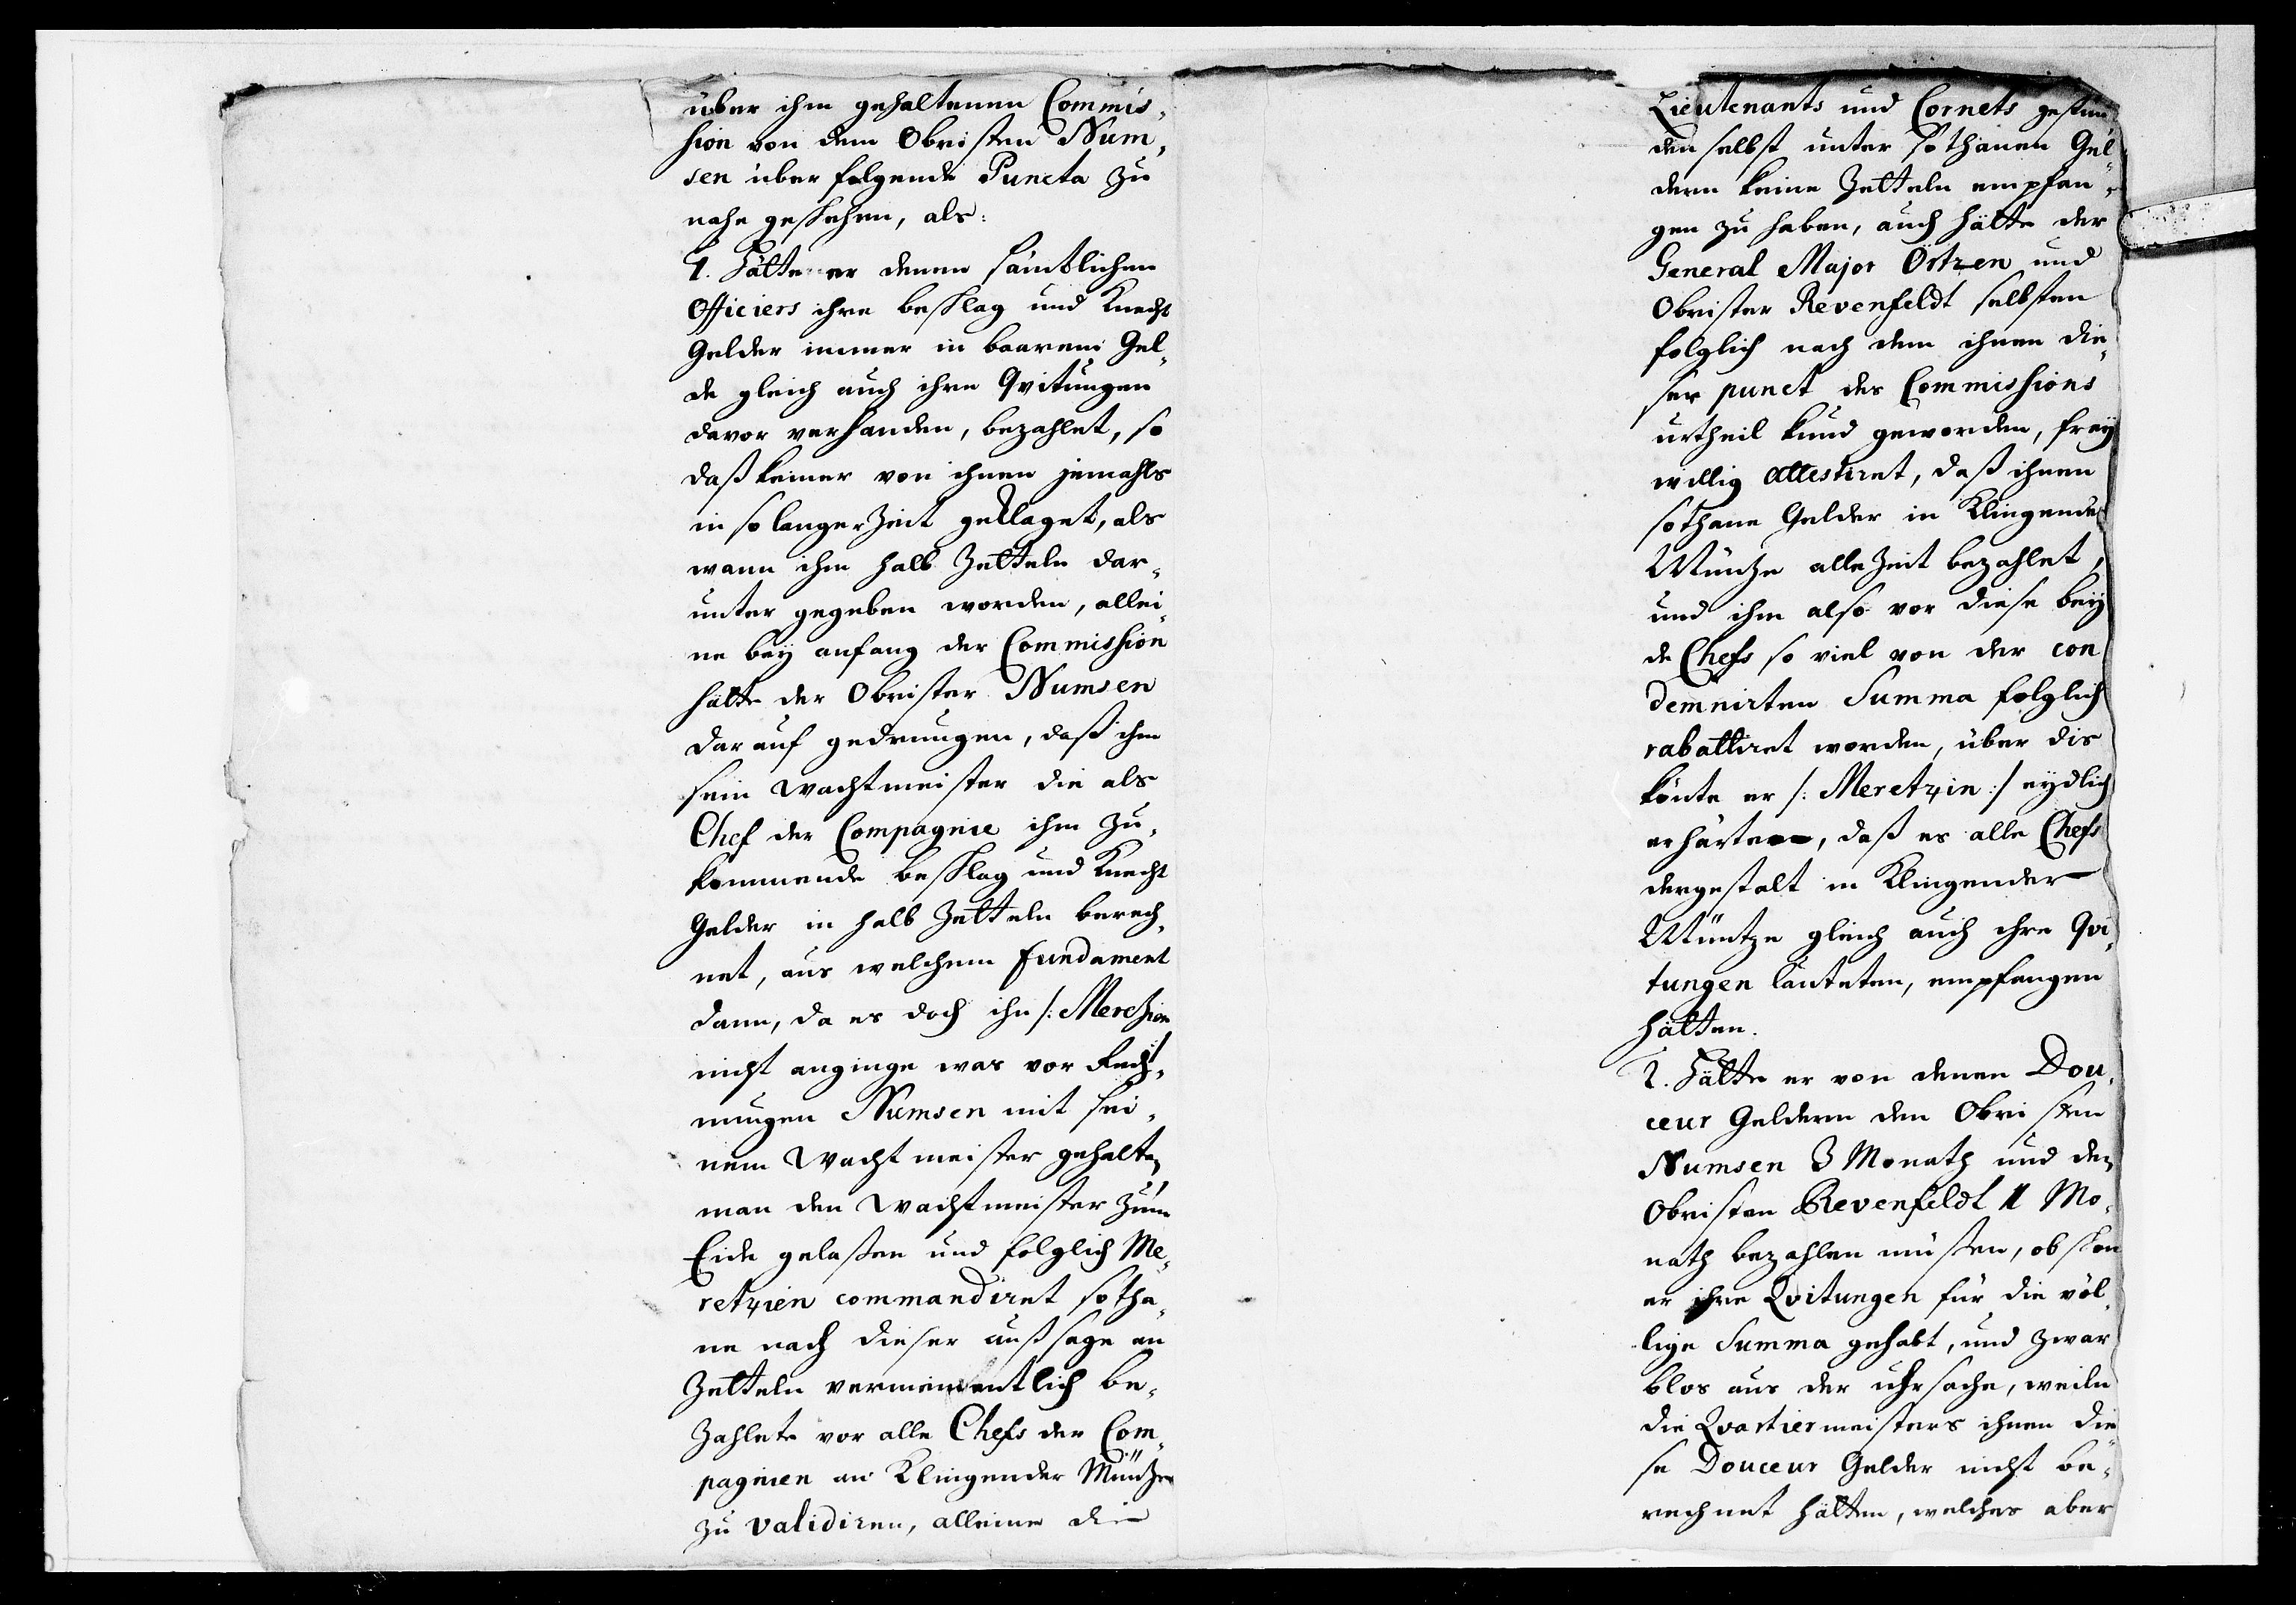 über ihm gehaltenen Commis-
sion von dem Obristen Num-
sen über folgende Puncta zu
nahe geschehen, als:
1. Hätte er denen sämtlichen
Officiers ihre beschlag und Knecht
Gelder immer in baarem Gel-
de gleich auch ihre Qvitungen
davor verhanden, bezahlet, so
daß keiner von ihnen jemahls
in so langer Zeit geklaget, als
wann ihm halb Zetteln dar-
unter gegeben worden, allei-
ne bey anfang der Commission
hätte der Obrister Numsen
darauf gedrungen, daß ihm
sein Wachtmeister die als
Chef der Compagnie ihm zu-
kommende beschlag und Knecht
Gelder in halb Zetteln berech-
net, aus welchem fundament
dann, da es doch ihn /: Meretzien
nicht anginge was vor Rech-
nungen Numsen mit sei-
nem Wachtmeister gehalten
man den Wachtmeister zum
Eide gelaßen und folglich Me-
retzien commandiret sotha-
ne nach dieser außsage an
Zetteln vermeinentlich be-
zahlete vor alle Chefs der Com-
pagnien an Klingender Müntze
zu validiren, alleine die
Lieutenants und Cornets gestün-
den selbst unter sothanen Gel-
dern keine Zetteln empfan-
gen zu haben, auch hätte der
General Major Örtzen und
Obrister Revenfeldt selbsten
folglich nach dem ihnen die-
ser punct des Commissions
urtheil kund geworden, frey
willig attestiret, daß ihnen
sothane Gelder in Klingender
Müntze alle Zeit bezahlet,
und ihm also vor diese bey
de Chefs so viel von der con
demnirten Summa folglich
rabattiret worden, über dis
könte er /: Meretzin :/ eydlich
erhärten, daß es alle Chefs
dergestalt in Klingender
Müntze gleich auch ihre Qvi-
tungen lauteten, empfangen
hätten.
2. Hätte er von denen Dou-
ceur Geldern den Obristen
Numsen 3 Monath und den
Obristen Revenfeldt 11 Mo-
nath bezahlen müßen, ob schon
er ihre Qvitungen für die völ-
lige Summa gehabt, und zwar
blos aus der uhrsache, weiln
die Qvartiermeisters ihnen die
se Douceur Gelder nicht be-
rechnet hätten, welches aber